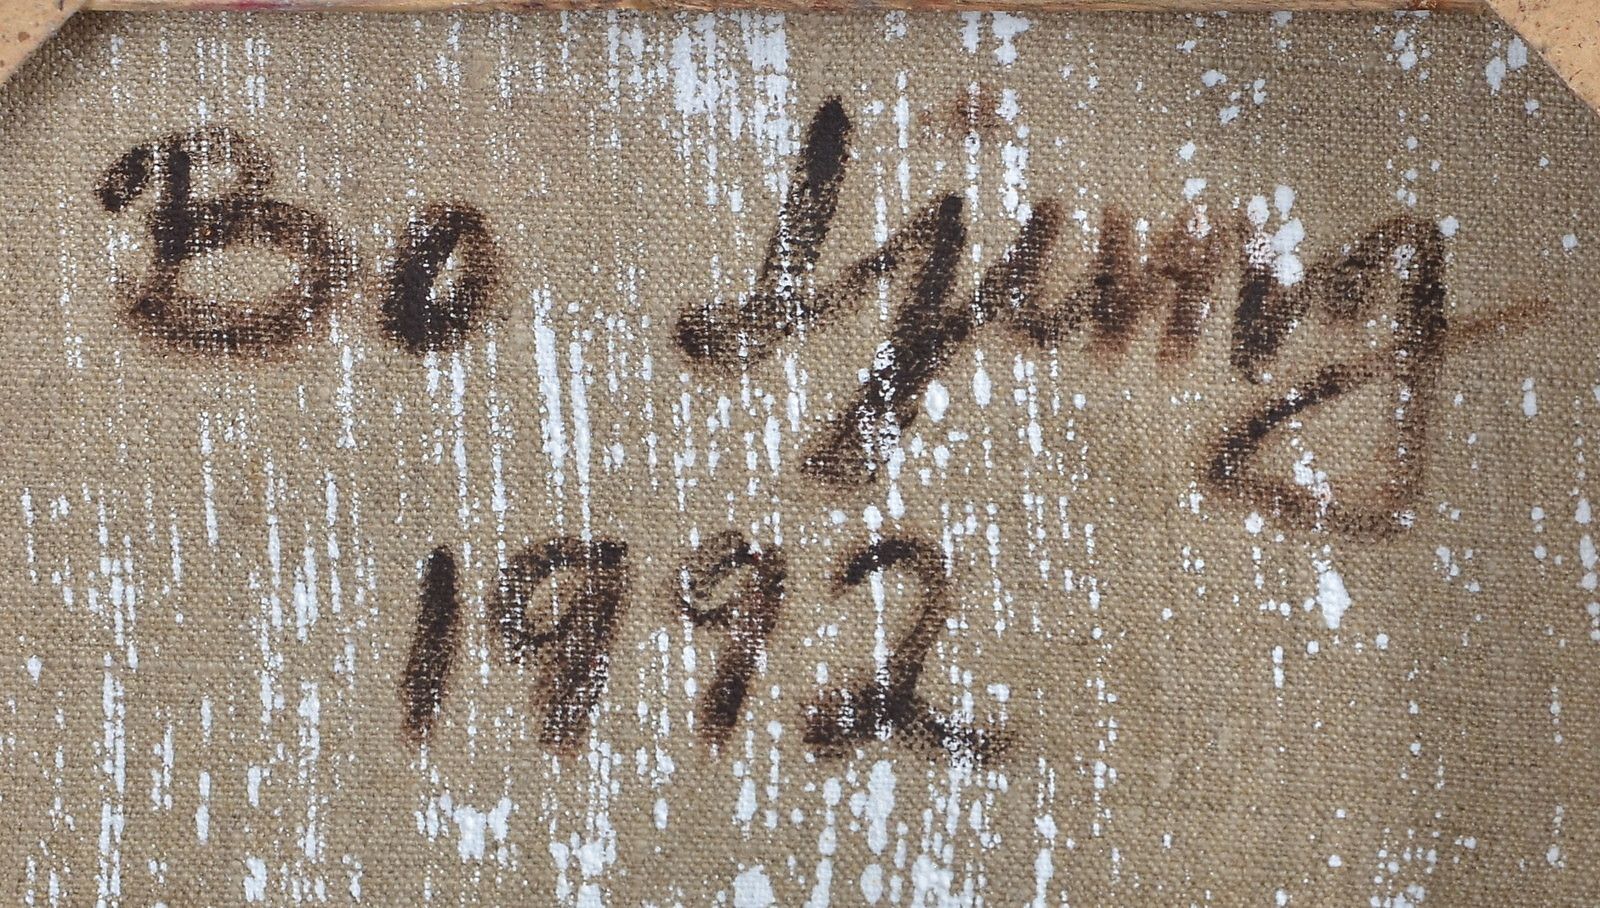 Bo Ljung
1992